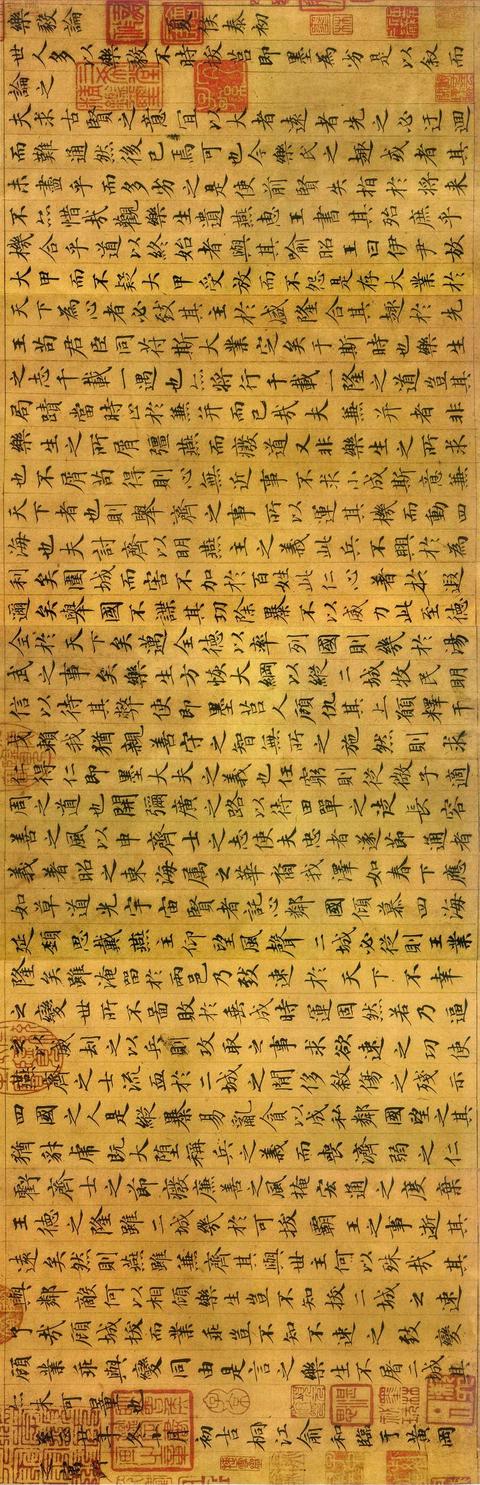 樂毅論 夏侯泰初
世人多以樂毅不時拔莒即墨為劣是以叙而
論之
夫求古賢之意宜以大者遠者先之必迂迴
而難通然後已焉可也今樂氏之趣或者其
未盡乎而多劣之是使前賢失指於將來
不亦惜哉觀樂生遺燕惠王書其殆庶乎
機合乎道以終始者與其喻昭王曰伊尹放
大甲而不疑大甲受放而不怨是存大業於
天下為心者必致其主於盛隆合其趣於先
王苟君臣同符斯大業定矣于斯時也樂生
之志千載一遇也亦將行千載一隆之道豈其
局蹟當時止於兼并而已哉夫兼并者非
樂生之所屑彊燕而廢道又非樂生之所求
也不屑苟得則心無近事不求小成斯意兼
天下者也則舉齊之事所以運其機而動四
海也夫討齊以明燕主之義此兵不興於為
利矣圍城而害不加於百姓此仁心著於遐
邇矣舉國不謀其功除暴不以威力此至德
全於天下矣邁全德以率列國則幾於湯
武之事矣樂生方恢大綱以縱二城牧民明
信以待其弊使即墨莒人顧仇其上願釋干
戈賴我猶親善守之智無所之施然則求
仁得仁即墨大夫之義也任窮則從微子適
周之道也開彌廣之路以待田單之徒長容
善之風以申齊士之志使夫忠者遂節通者
義著昭之東海屬之華裔我澤如春下應
如草道光宇宙賢者託心鄰國傾慕四海
延頸思戴燕王仰望風聲二城必從則王業
隆矣雖淹留於兩邑乃致速於天下不幸
之變世所不啚敗於垂成時運固然若乃逼
之以威刧之以兵則攻取之事求欲速之功使
燕齊之士流血於二城之間侈殺傷之殘示
四國之人是縱暴易亂貪以成私鄰國望之其
猶豺虎既大墮稱兵之義而喪濟弱之仁
虧齊士之節廢廉善之風掩宏通之度棄
王德之隆雖二城幾於可拔霸王之事逝其
遠矣然則燕雖兼齊其與世主何以殊哉其
與鄰敵何以相傾樂生豈不知拔二城之速
了哉顧城拔而業乖豈不知不速之致變
顧業乖與變同由是言之樂生不屠二城其
亦未可量也
初吉桐江俞和臨于黃岡